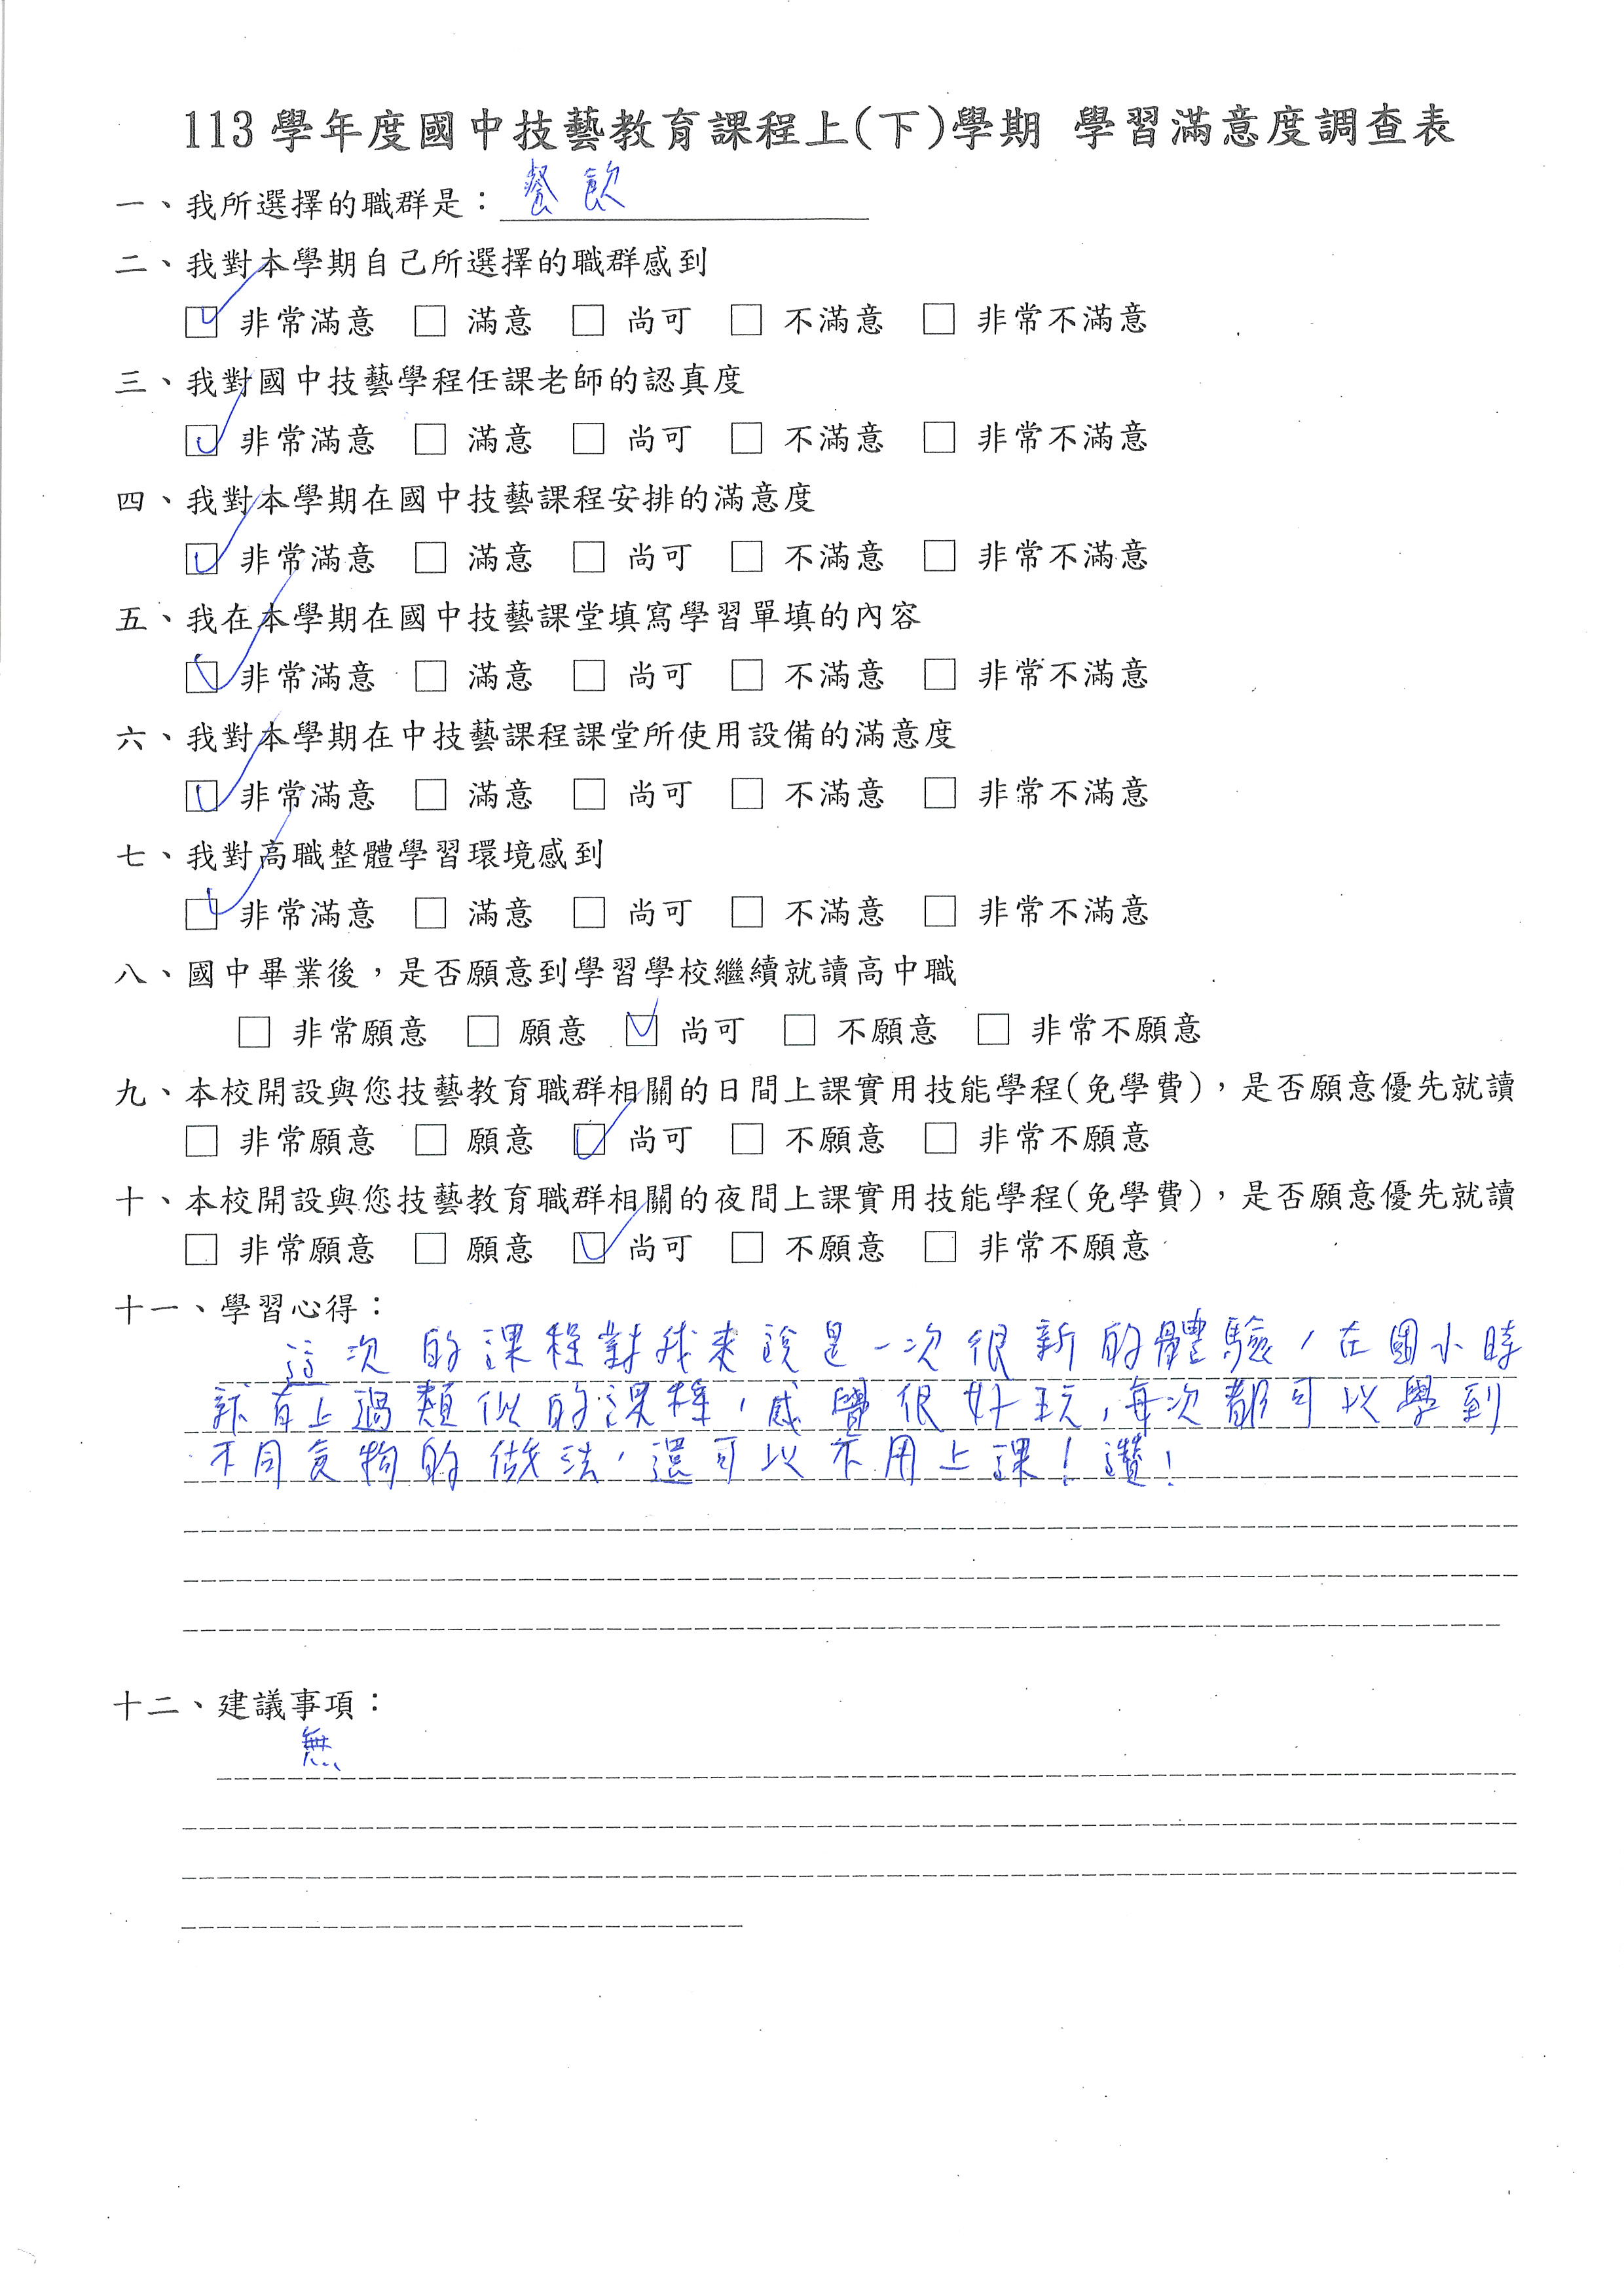 113 學年度國中技藝教育課程上(下)學期 學習滿意度調查表
一、我所選擇的職群是：餐飲
二、我對本學期自己所選擇的職群感到
☑ 非常滿意 □ 滿意 □ 尚可 □ 不滿意 □ 非常不滿意
三、我對國中技藝學程任課老師的認真度
☑ 非常滿意 □ 滿意 □ 尚可 □ 不滿意 □ 非常不滿意
四、我對本學期在國中技藝課程安排的滿意度
☑ 非常滿意 □ 滿意 □ 尚可 □ 不滿意 □ 非常不滿意
五、我在本學期在國中技藝課堂填寫學習單填的內容
☑ 非常滿意 □ 滿意 □ 尚可 □ 不滿意 □ 非常不滿意
六、我對本學期在中技藝課程課堂所使用設備的滿意度
☑ 非常滿意 □ 滿意 □ 尚可 □ 不滿意 □ 非常不滿意
七、我對高職整體學習環境感到
☑ 非常滿意 □ 滿意 □ 尚可 □ 不滿意 □ 非常不滿意
八、國中畢業後，是否願意到學習學校繼續就讀高中職
□ 非常願意 □ 願意 ☑ 尚可 □ 不願意 □ 非常不願意
九、本校開設與您技藝教育職群相關的日間上課實用技能學程(免學費)，是否願意優先就讀
□ 非常願意 □ 願意 ☑ 尚可 □ 不願意 □ 非常不願意
十、本校開設與您技藝教育職群相關的夜間上課實用技能學程(免學費)，是否願意優先就讀
□ 非常願意 □ 願意 ☑ 尚可 □ 不願意 □ 非常不願意
十一、學習心得：
這次的課程對我來說是一次很新的體驗，在國小時
有上過類似的課程，感覺很好玩，每次都可以學到
不同食物的做法，還可以不用上課！讚！
十二、建議事項：
無